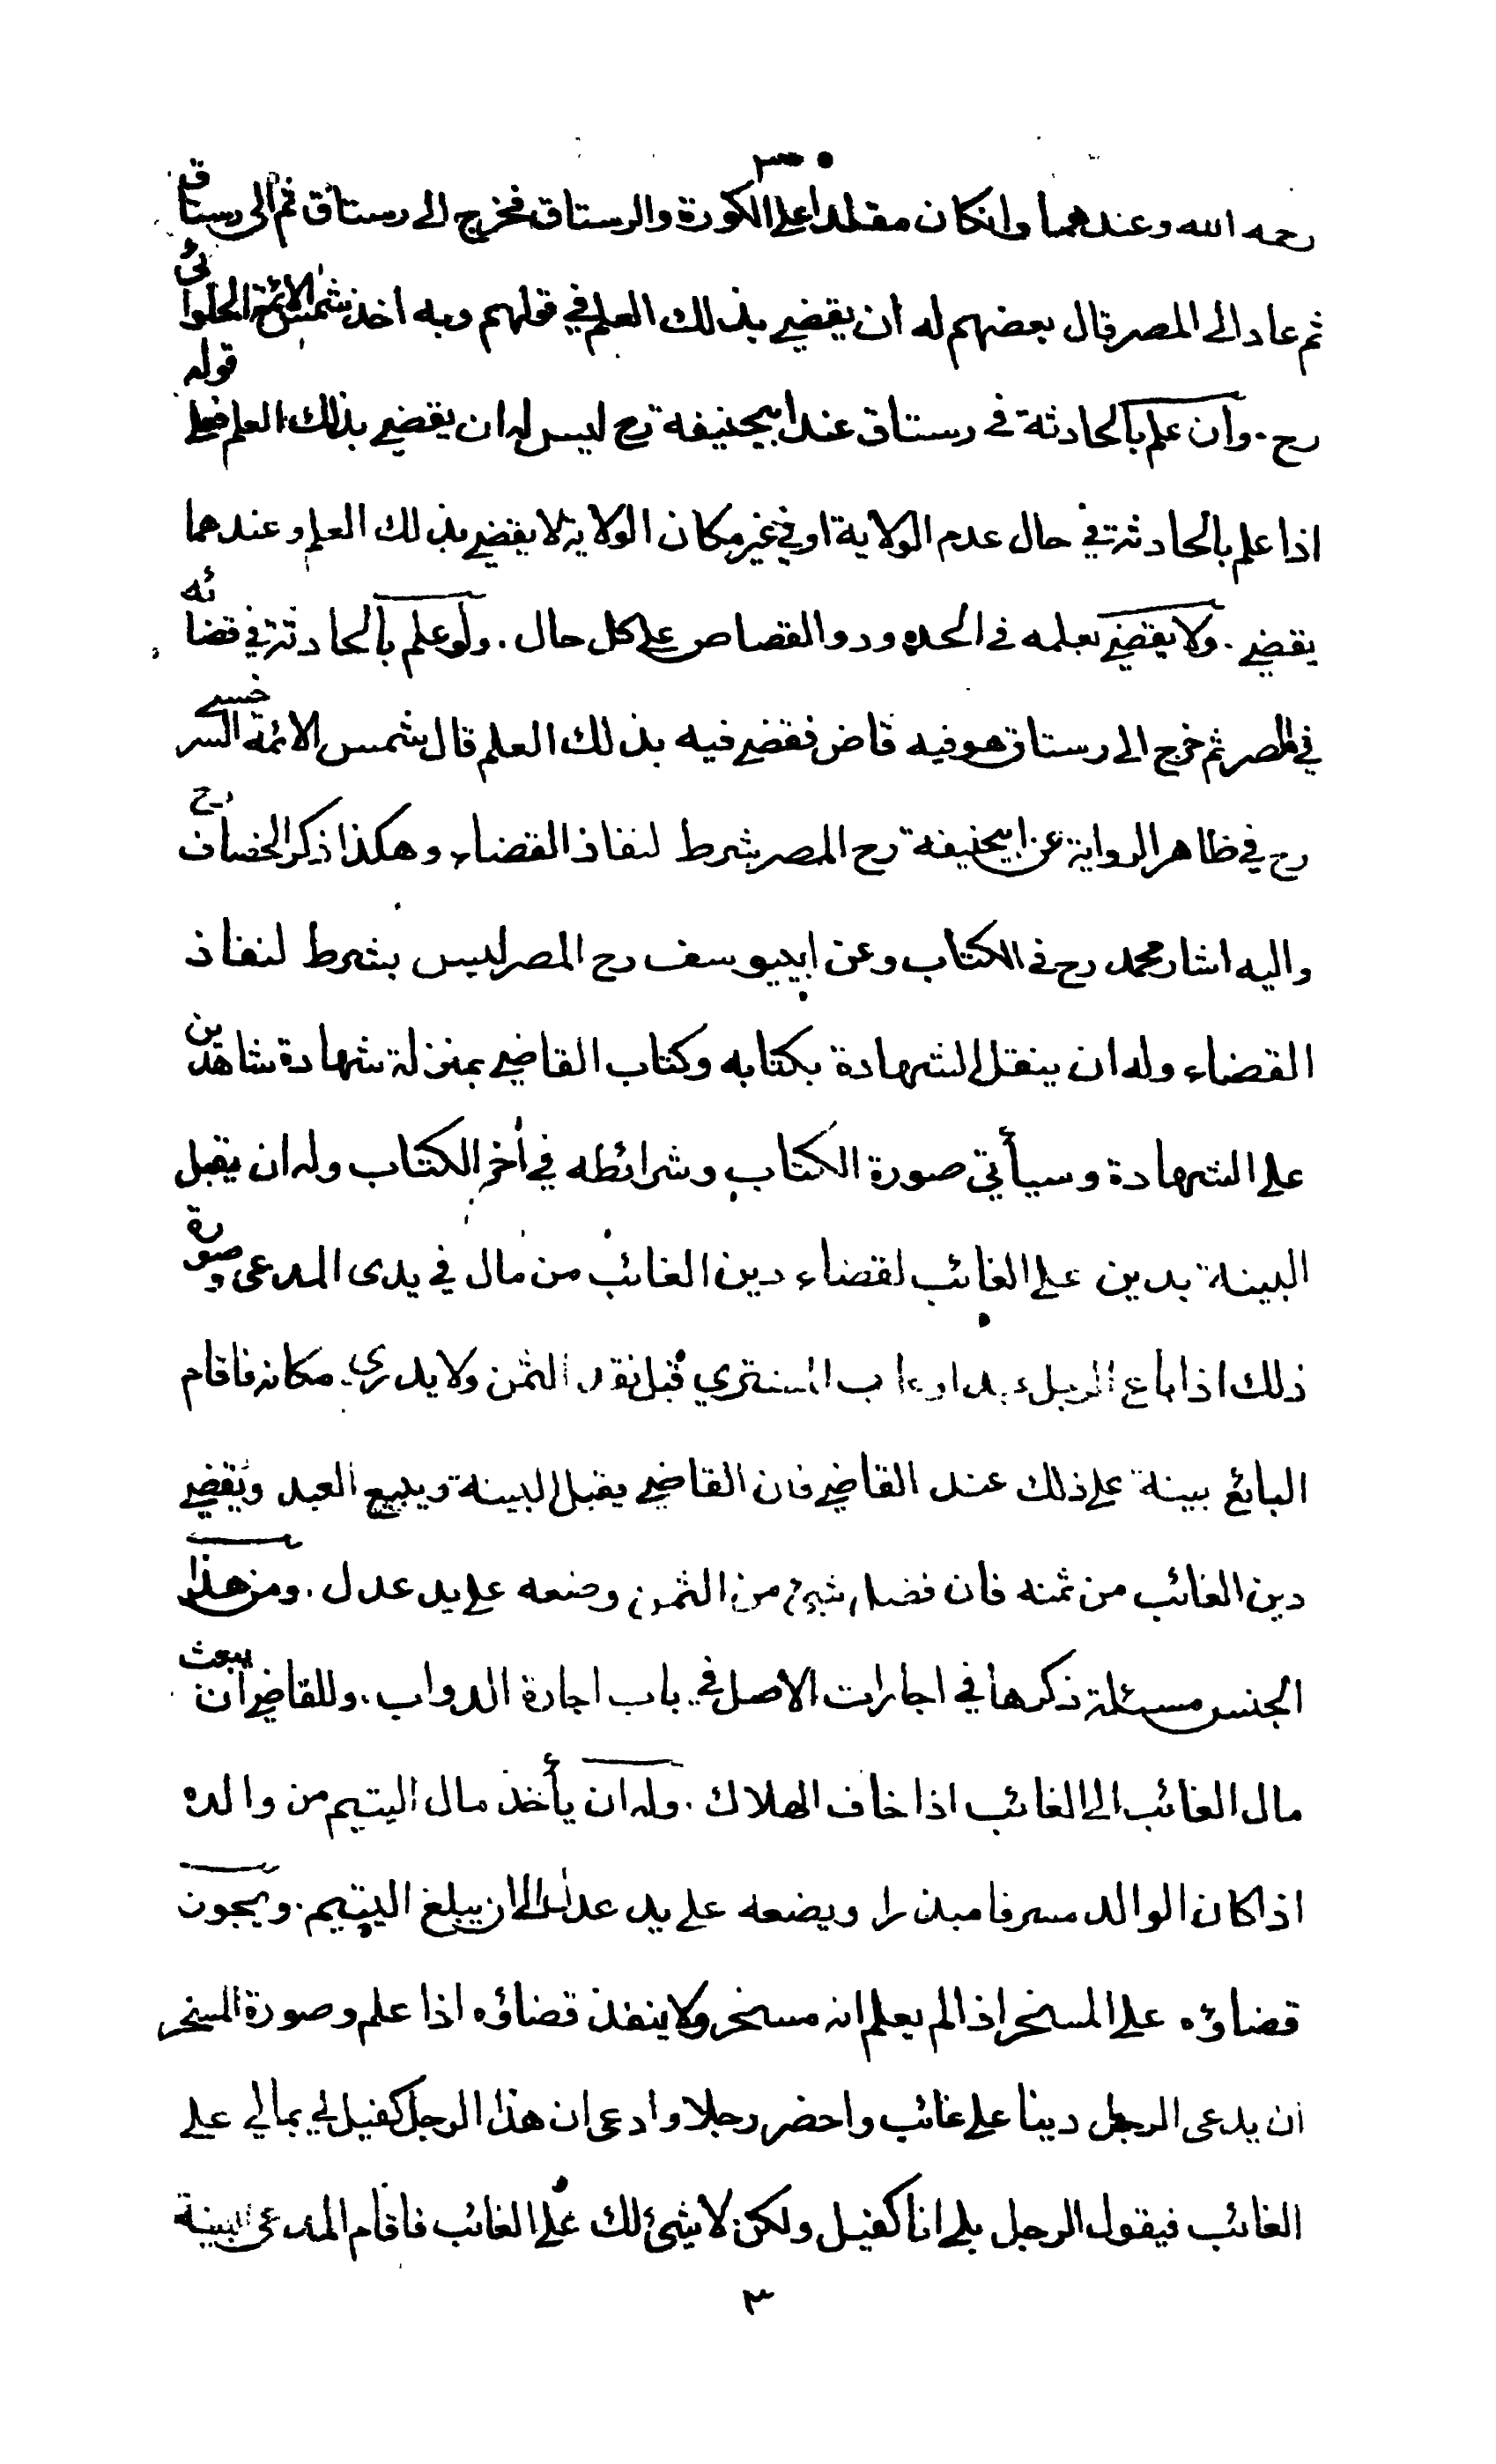 رحمه الله وعندهما وانكان مقلدا على الكورة والرستاق فخرج الى رستاق ثم الى رستاق
ثم عاد الى المصر قال بعضهم له ان يقضي بذلك العلم في قولهم وبه اخذ شمس الائمة الحلوائي
رح . وان علم بالحادثة في رستاق عند ابيحنيفة رح ليس له ان يقضي بذلك العلم فعلى قوله
اذا علم بالحادثة في حال عدم الولاية او في غير مكان الولاية لا يقضي بذلك العلم وعندهما
يقضي . ولا يقضي بعلمه في الحدود والقصاص على كل حال . ولو علم بالحادثة في قضائه
في المصر ثم خرج الى رستاق هو فيه قاض فقضى فيه بذلك العلم قال شمس الائمة السرخسي
رح في ظاهر الرواية عن ابيحنيفة رح المصر شرط لنفاذ القضاء وهكذا ذكر الخصاف رح
واليه اشار محمد رح في الكتاب وعن ابييوسف رح المصر ليس بشرط لنفاذ
القضاء وله ان ينقل الشهادة بكتابه وكتاب القاضي بمنزلة شهادة شاهدين
على الشهادة وسيأتي صورة الكتاب وشرائطه في أخر الكتاب وله ان يقبل
البينة بدين على الغائب لقضاء دين الغائب من مال في يدى المدعى وصورة
ذلك اذا باع الرجل المشتري قبل نقد الثمن ولا يدري مكانه فاقام
البائع بينة على ذلك عند القاضي فان القاضي يقبل البينة ويبيع العبد ويقضي
دين الغائب من ثمنه فان فضل شيئ من الثمن وضعه على يد عدل . ومن هذا
الجنس مسئلة ذكرها في اجارات الاصل في باب اجارة الدواب . وللقاضي ان يبعث
مال الغائب الى الغائب اذا خاف الهلاك . وله ان يأخذ مال اليتيم من والده
اذا كان الوالد مسرفا مبذرا ويضعه على يد عدل الى ان يبلغ اليتيم . ويجوز
قضاؤه على المسخر اذا لم يعلم انه مسخر ولا ينفذ قضاؤه اذا علم وصورة المسخر
ان يدعى الرجل دينا على غائب واحضر رجلا وادعى ان هذا الرجل كفيل لي بمالي على
الغائب فيقول الرجل بلى انا كفيل ولكن لا شيئ لك على الغائب فاقام المدعى البينة
٣